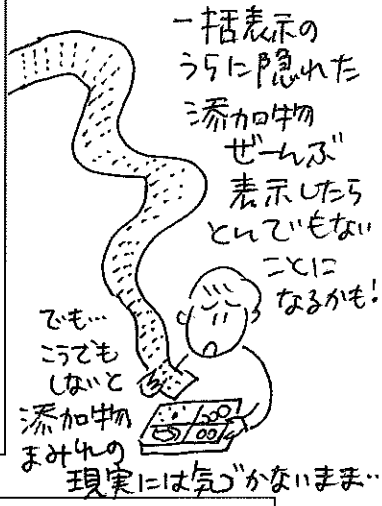 一括表示の
うらに隠れた
添加物
ぜーんぶ
表示したら
とんでもない
ことに
なるかも!
でも…
こうでも
しないと
添加物
まみれの
現実には気づかないまま…